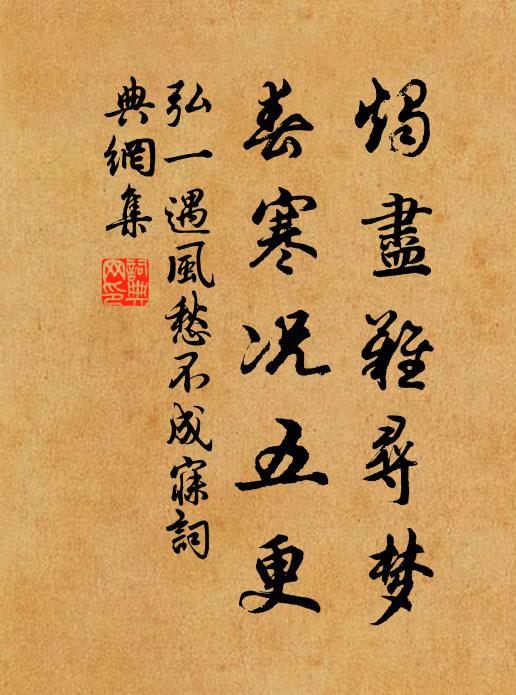 燭盡難尋梦
春寒况五更
弘一遇風愁不成寐詞
典網集
詞典網印